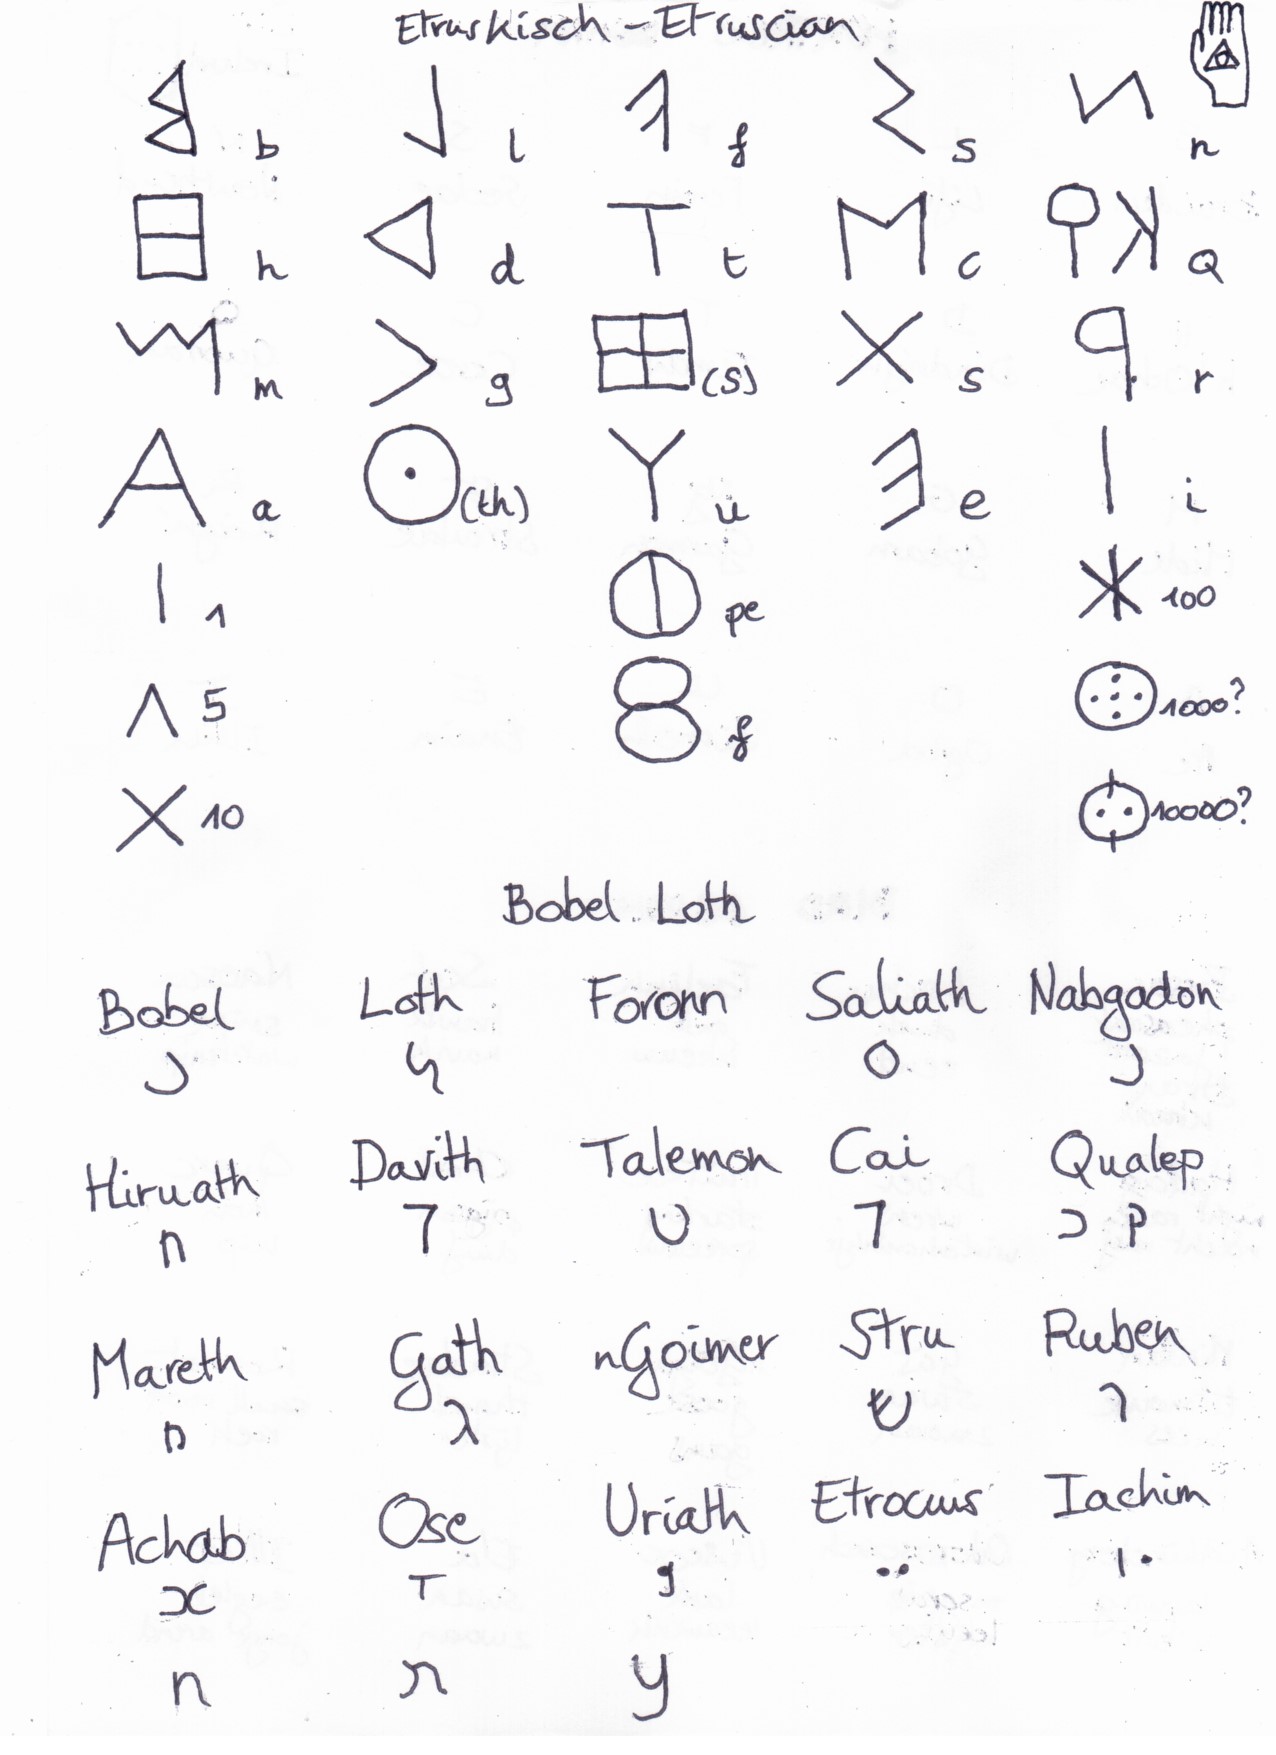 Etruskisch - Etruscian
b l f s n
h d t c Q
m g (S) s r
a (th) u e i
1 pe 100
5 f 1000?
10 10000?
Bobel Loth
Bobel Loth Foronn Saliath Nabgadon
Hiruath Davith Talemon Cai Qualep
Mareth Gath nGoimer Stru Ruben
Achab Ose Uriath Etrocuus Iachim
n n y